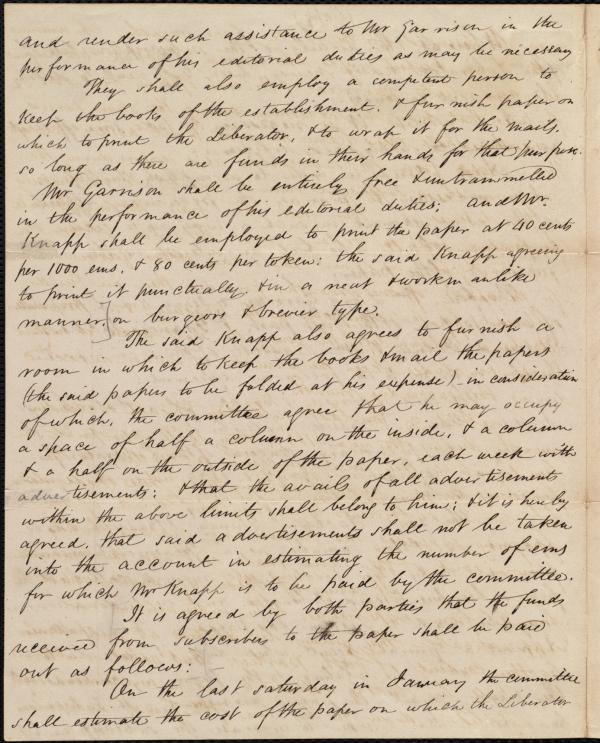 and render such assistance to Mr Garrison in the
performance of his editorial duties as may be necessary
They shall also employ a competent person to
keep the books of the establishment. & furnish paper on
which to print the Liberator, & to wrap it for the mails.
so long as there are funds in their hands for that purpose.
Mr Garrison shall be entirely free & untrammelled
in the performance of his editorial duties; and Mr.
Knapp shall be employed to print the paper at 40 cents
per 1000 ems. & 80 cents per token: the said Knapp agreeing
to print it punctually, & in a neat & workmanlike
manner, on burgeois & brevier type.
The said Knapp also agrees to furnish a
room in which to keep the books & mail the papers
(the said papers to be folded at his expense) in consideration
of which, the committee agree that he may occupy
a space of half a column on the inside, & a column
& a half on the outside of the paper, each week with
advertisements: & that the avails of all advertisements
within the above limits shall belong to him; & it is hereby
agreed, that said advertisements shall not be taken
into the account in estimating the number of ems
for which Mr Knapp is to be paid by the committee.
It is agreed by both parties that the funds
received from subscribers to the paper shall be paid
out as follows:
On the last saturday in January the committee
shall estimate the cost of the paper on which the Liberator